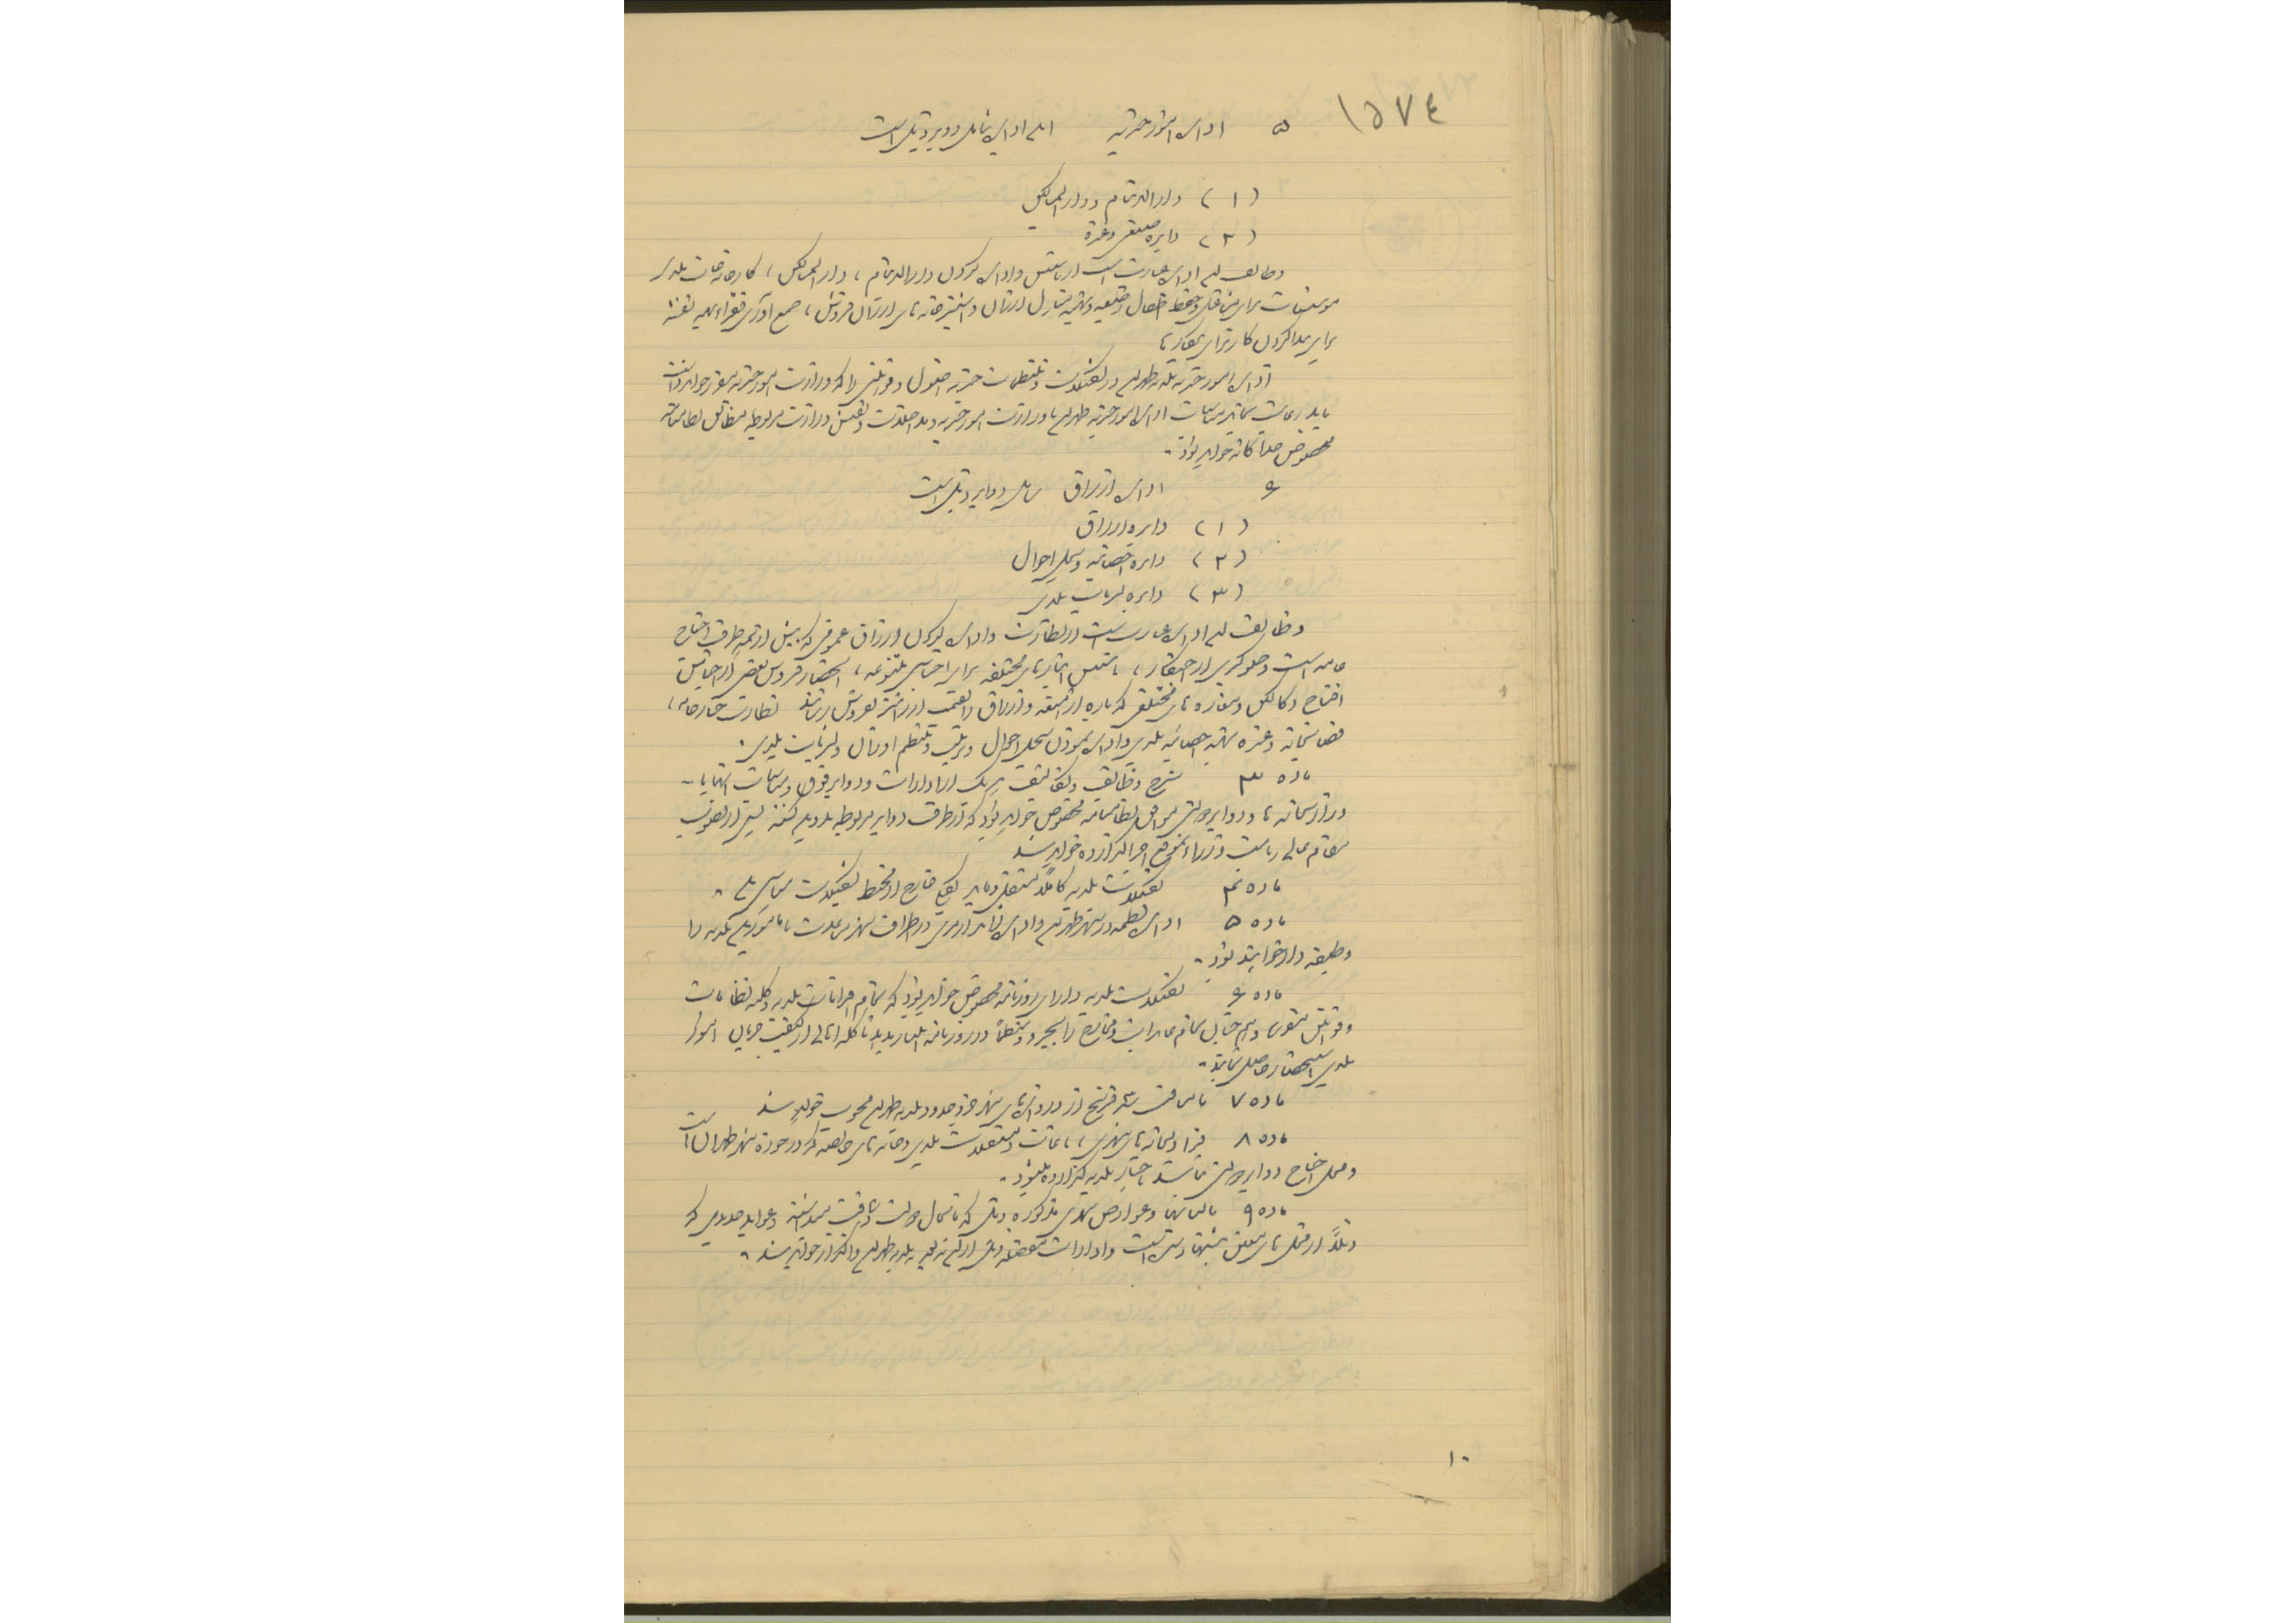 ١٥٧٤
٥ اداره امور خیریه این اداره شامل دوایر ذیل است
(١) دارالایتام و دارالمساکین
(٢) دایره صنفی و غیره
وظایف این اداره عبارت است از تأسیس و اداره کردن دارالایتام، دارالمساکین، کارخانه‌جات بلدی
مؤسسات برای اطفال و حفظ اطفال ارزان و آشپزخانه‌های ارزان فروش، جمع آوری فقراء تهیه نقشه
برای پیدا کردن کار برای بیکارها
اداره امور خیریه بلدیه طهران در تشکیلات و تنظیمات خیریه اصول و قوانینی را که وزارت امور خیریه مقرر خواهد داشت
باید رعایت نماید مناسبات اداره امور خیریه طهران با وزارت امور خیریه و مداخلات و تفتیش وزارت مربوطه مطابق نظامنامه
مخصوص جداگانه خواهد بود.
٦ اداره ارزاق شامل دوایر ذیل است
(١) دایره ارزاق
(٢) دایره احصائیه و سجل احوال
(٣) دایره نشریات بلدی
وظایف این اداره عبارت است از نظارت و اداره کردن ارزاق عمومی که بیش از همه طرف احتیاج
عامه است و جلوگیری از احتکار، تأسیس انبارهای مختلفه برای اجناس متنوعه، انحصار فروش بعضی از اجناس
افتتاح دکاکین و مغازه‌های مختلفی که باره امتعه و ارزاق را بقیمت ارزانتر بفروش رسانند نظارت خبازخانه،
قصابخانه و غیره تهیه احصائیه بلدی و اداره نمودن سجل احوال و ترتیب و تنظیم اوزان و نشریات بلدی.
ماده ٣ شرح وظایف و تکالیف هر یک از ادارات و دوایر فوق و مناسبات آنها با
وزارتخانه‌ها و دوایر دولتی موافق نظامنامه مخصوص خواهد بود که از طرف دوایر مربوطه تدوین گشته پس از تصویب
مقام عالی ریاست وزراء بموقع اجرا گذارده خواهد شد
ماده ٤ تشکیلات بلدیه کاملاً مستقل و باید بکلی خارج از محیط تشکیلات سیاسی باشد.
ماده ٥ اداره نظمیه در شهر طهران و اداره ژاندارمری در اطراف شهر مساعدت با مأمورین بلدیه را
وظیفه‌دار خواهند بود.
ماده ٦ تشکیلات بلدیه دارای روزنامه مخصوص خواهد بود که تمام اجراآت بلدیه و کلیه نظامات
و قوانین شهری و همچنین تمام عایدات و مخارج را بتجزیه و منظماً در روزنامه انتشار بدهد تا کلیه اهالی از کیفیت جریان امور
بلدی استحضار حاصل نمایند.
ماده ٧ تا مسافت سه فرسخ از دروازه‌های شهر جزو حدود بلدیه طهران محسوب خواهد شد
ماده ٨ قراولخانه‌های شهری، باغات و مستغلات بلدی و خانه‌های خالصه که در حوزه شهر طهران است
و محل احتیاج دوایر دولتی نباشد باختیار بلدیه گذارده میشود.
ماده ٩ مالیاتها و عوارض شهری مذکوره ذیل که تا بحال دولت دریافت میداشته و عواید جدیدی که
ذیلاً از محل‌های معین پیشنهاد شده است و ادارات متعلقه ذیل از این تاریخ به بلدیه طهران واگذار خواهد شد.
١٠